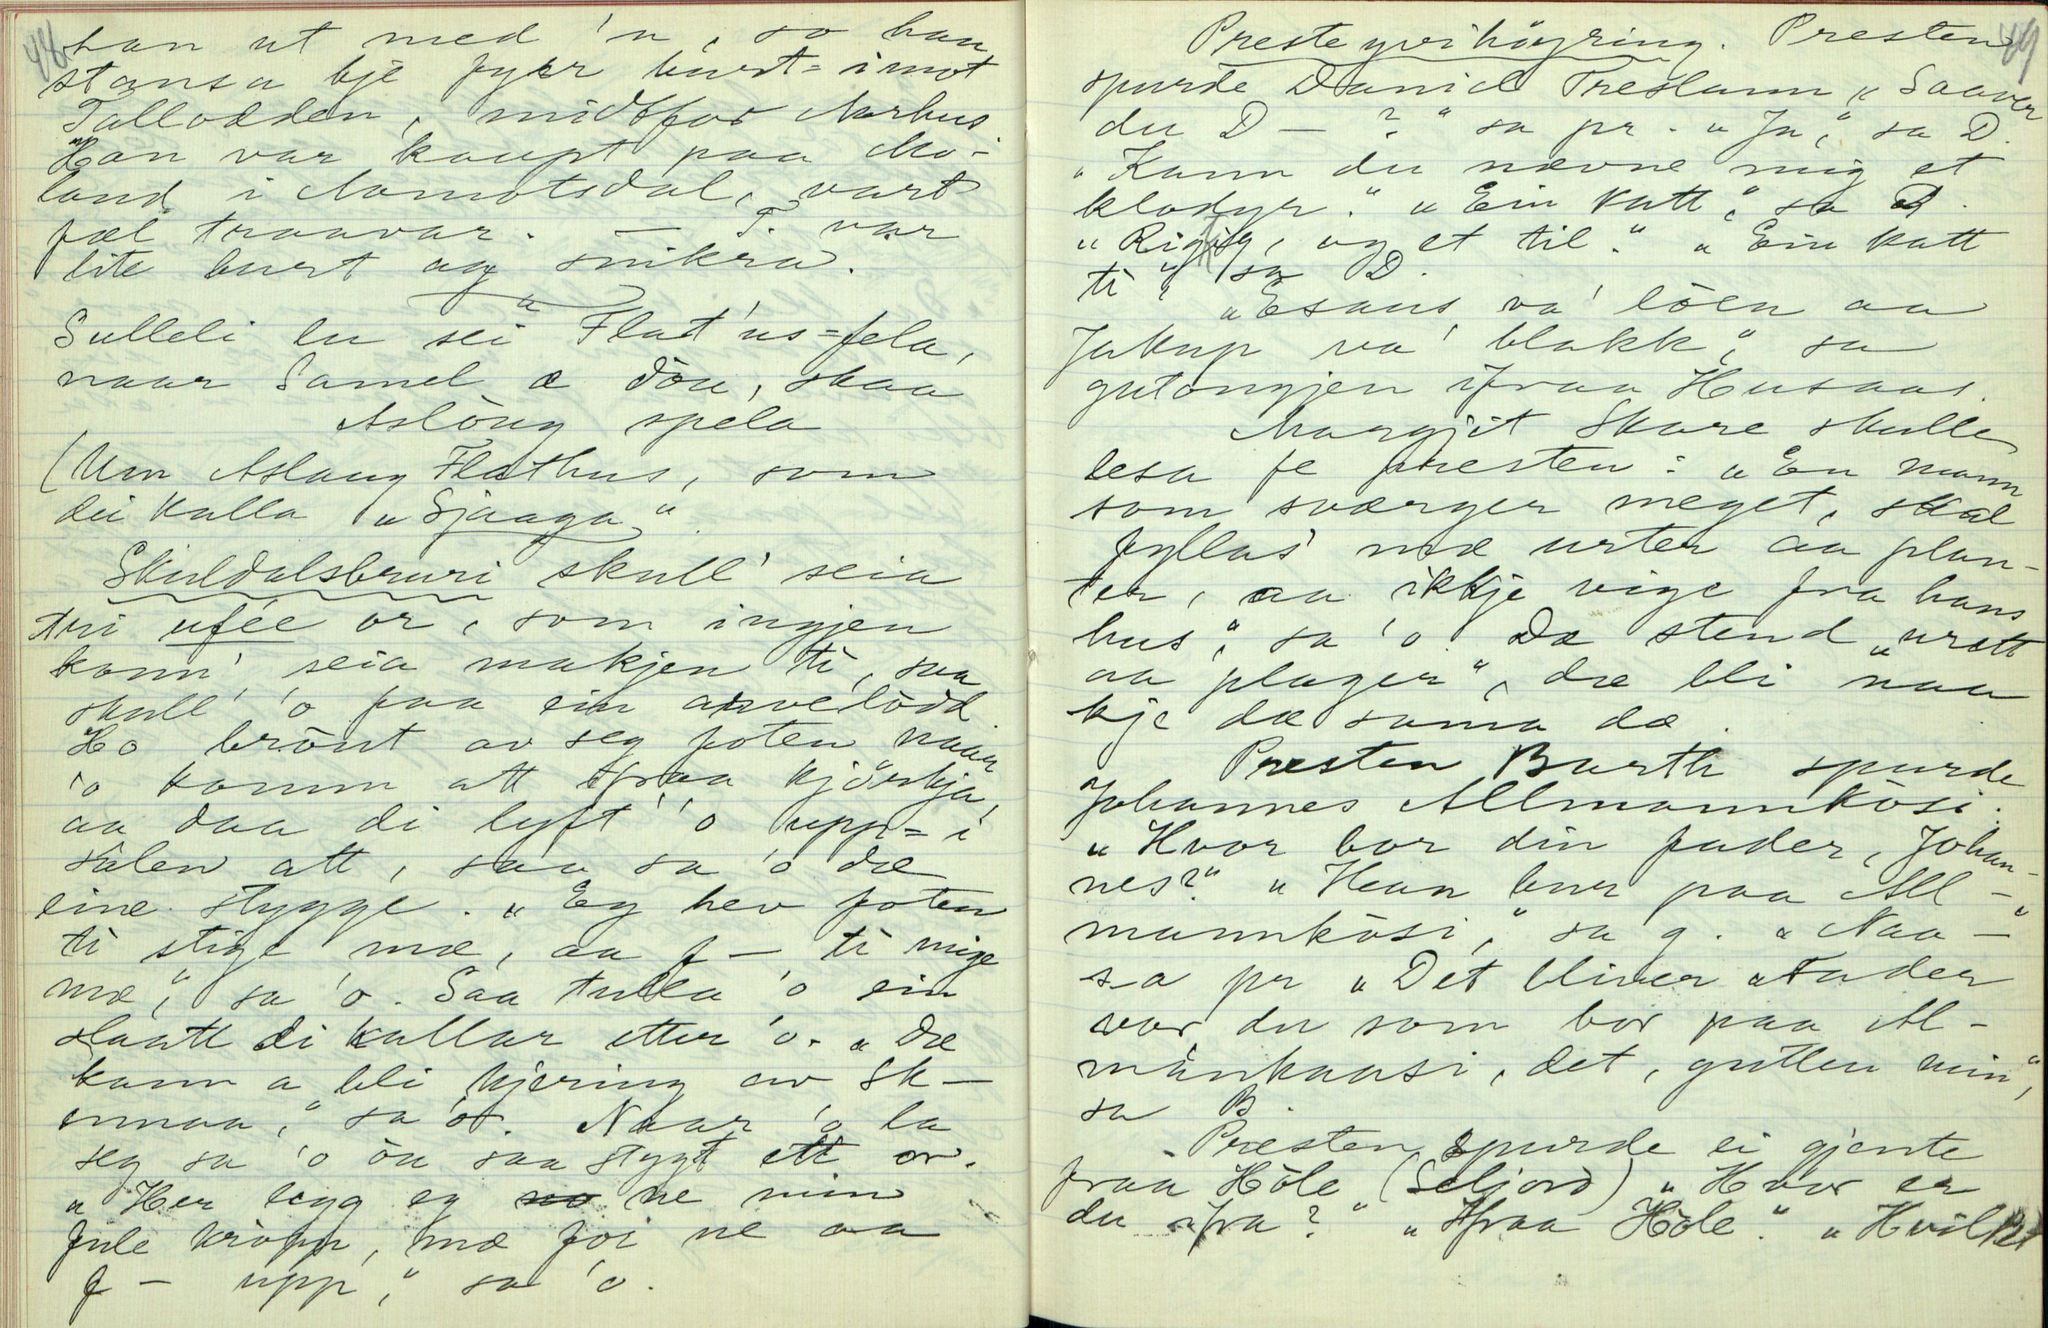 48
han ut med 'n, so han
stansa kje fyrr burt-imot
Tallodden, midtfor Aarhus.
Han var kaupt paa Mo-
land i Aamotsdal, vart
fæl traavar. — T. var
lite burt og snikra.
Sulleli lu sei Flat'us-fela,
naar Samel æ döu, skaa
Aslöug spela
(Um Aslaug Flathus, som
dei kalla „Sjaaga“.
Skuldalsbruri skull' seia
tri ufée or, som ingjen
kann' seia makjen ti, saa
skull' 'o faa ein arvelödd.
Ho brönt av seg foten naar
'o komm att ifraa kjörkja,
aa daa di lyft' 'o upp-i
salen att, saa sa 'o dæ
eine stygge. „Eg hev foten
ti stige mæ, aa f— ti mige
mæ,“ sa 'o. Saa tulla 'o ein
slaatt di kallar etter 'o. „Dæ
kann a bli kjering av Sk—
ennaa,“ sa 'o. Naar 'o la
seg sa 'o öu saa stygt ett or.
„Her legg eg ne min
fule kropp, mæ foi ne aa
f— upp,“ sa 'o.
49
Presteyvihöyring. Presten
spurde Daniel Treslann „Saaver
du D— ?“ sa pr. „Ja,“ sa D.
„Kann du nævne mig et
klodyr.“ „Ein katt,“ sa D.
„Rigtig, og et til.“ „Ein katt
ti“ sa D.
„Esaus va' löen aa
Jakup va' blakk,“ sa
gutongjen ifraa Husaas.
Margjit Skare skulle
lesa fe presten: „En mann
som sværger meget, skal
fyllas mæ urter aa plan-
ter, aa ikkje vige fra hans
hus,“ sa 'o. Dæ stend „urett
aa plager“, dæ bli naa
kje dæ sama dæ.
Presten Barth spurde
Johannes Allmannkösi.
„Hvor bor din fader, Johan-
nes?“ „Han bur paa All-
mannkösi,“ sa g. „Naa—“
sa pr „Det bliver Fader
vor du som bor paa Al-
mankaasi, det, gutten min“,
sa B.
Presten spurde ei gjente
fraa Höle (Seljord) „Hvor er
du ifra?“ „Ifraa Höle.“ „Hvilket